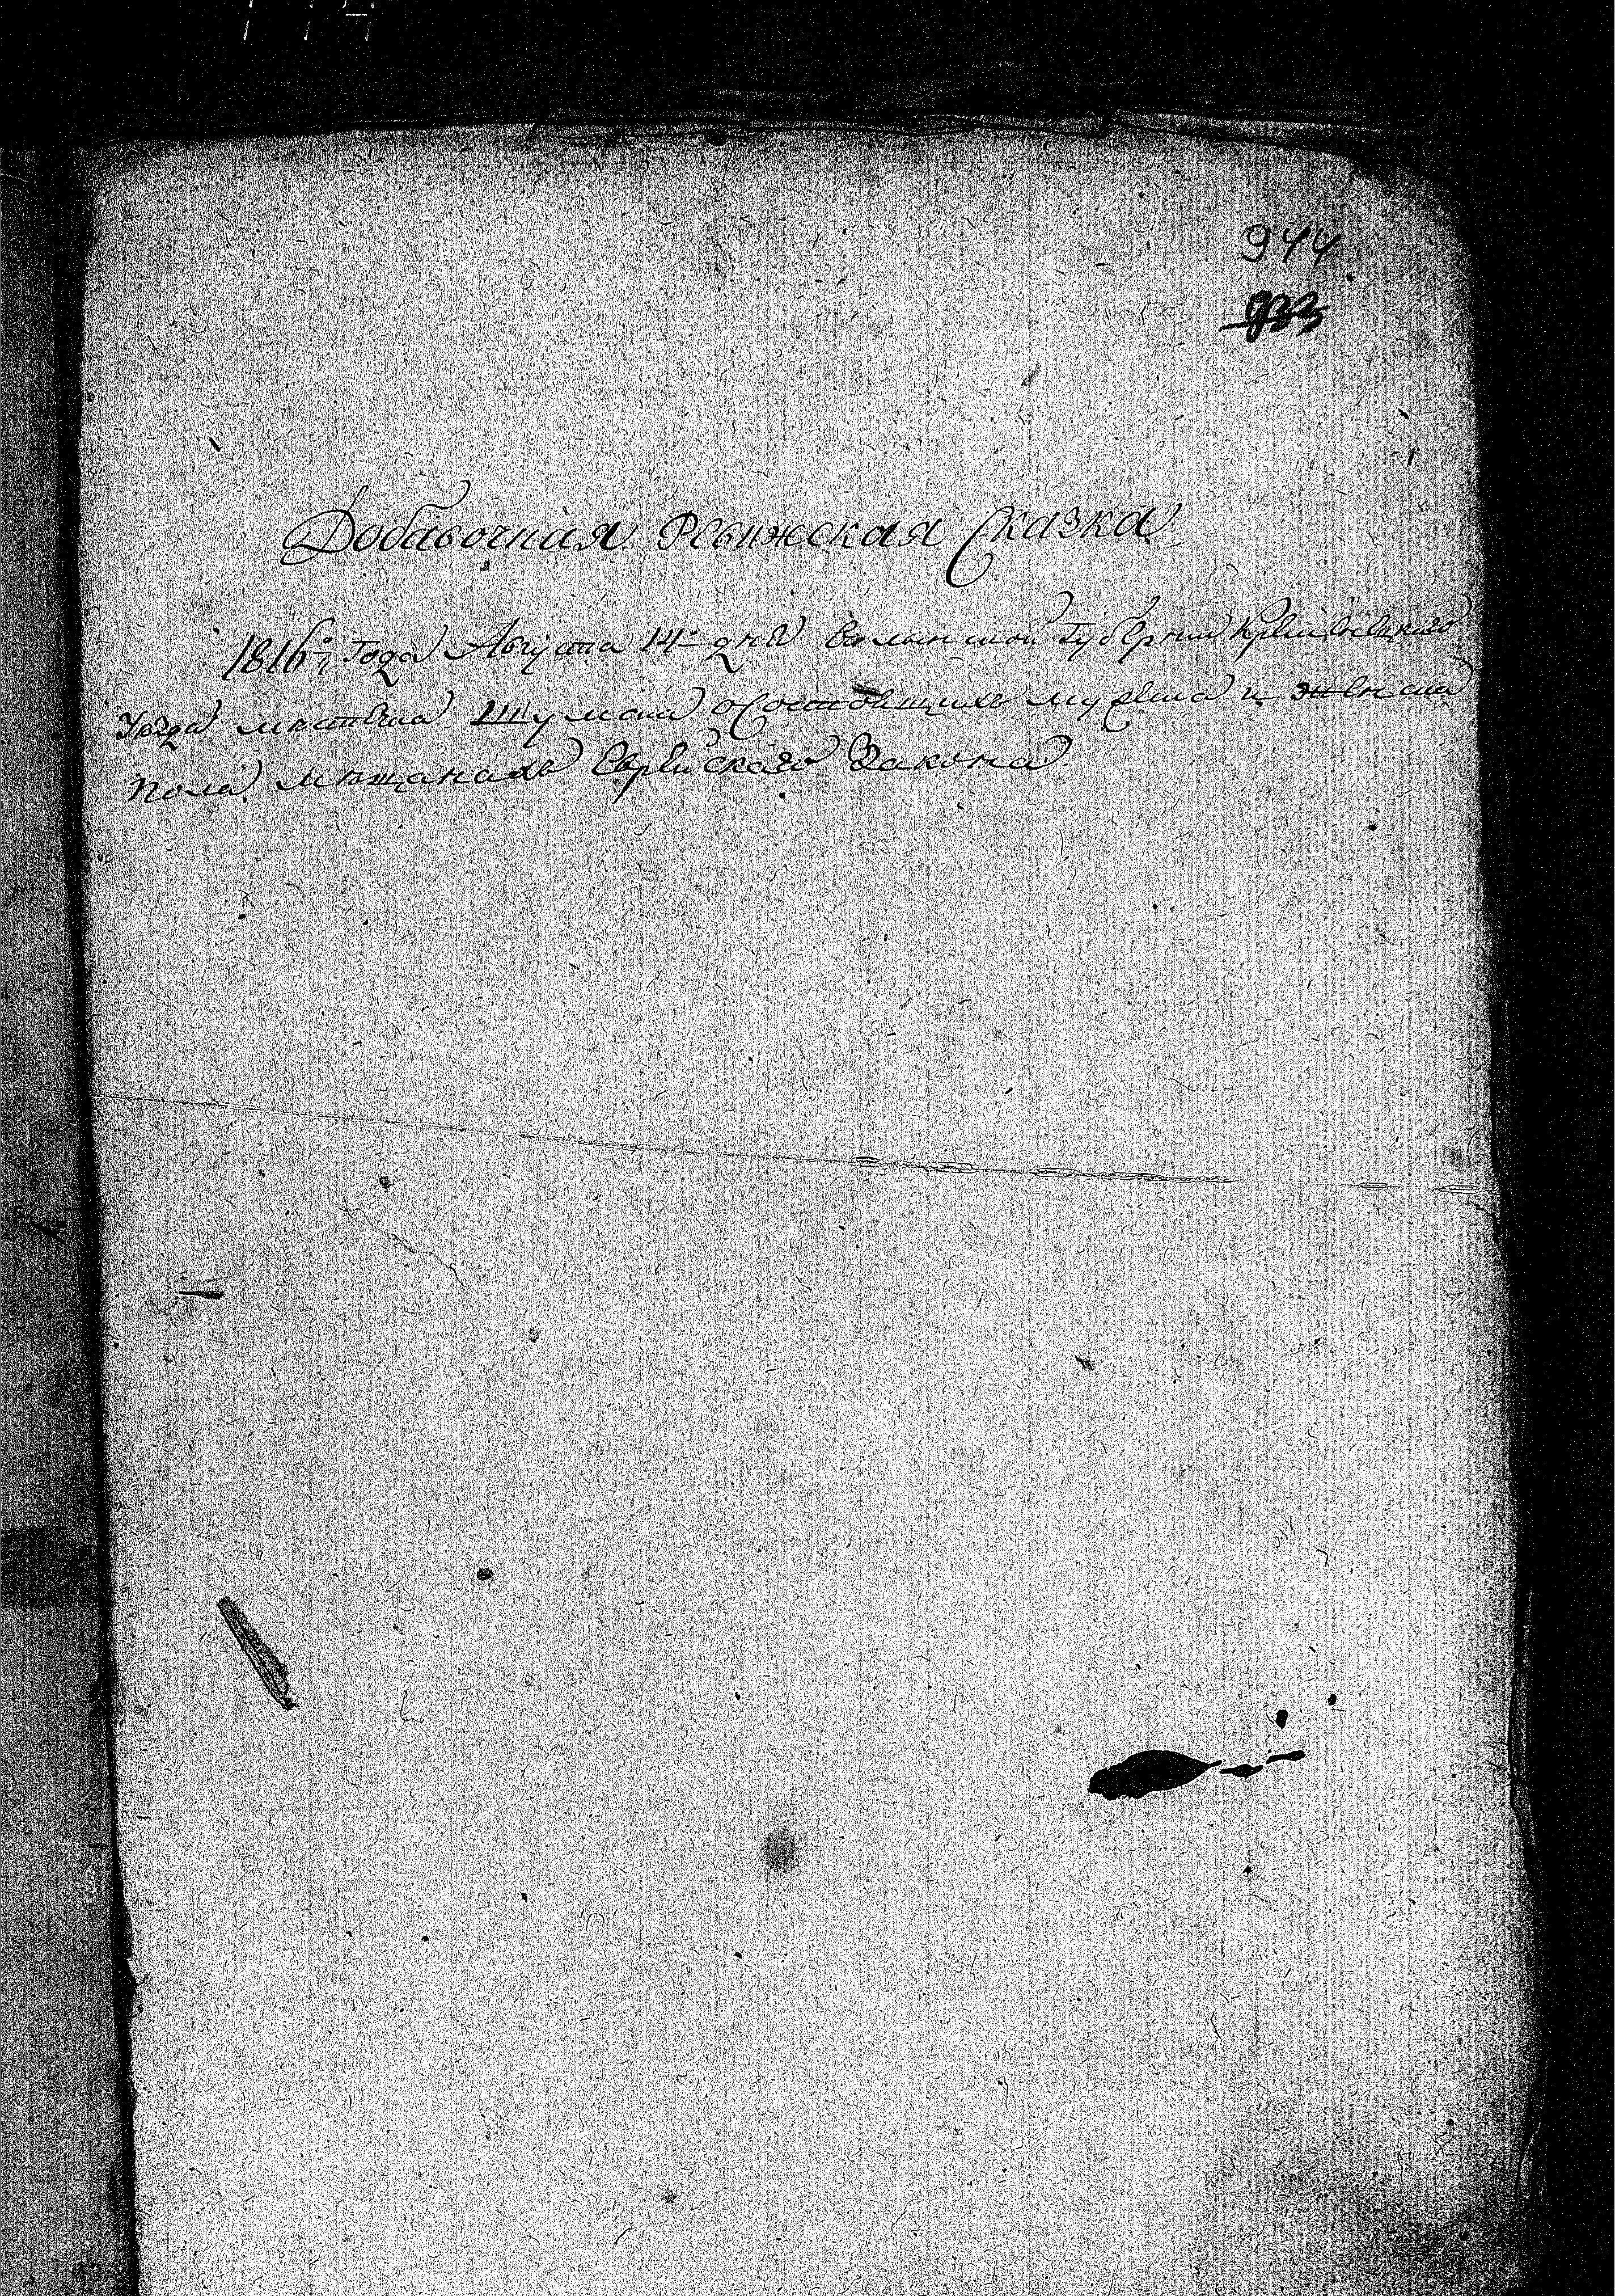 944
933
Добавочная Ревижская Сказка
1816го Года Августа 14го дня Волынской Губернии Кременецкаго
Уезда местечка Шумска о Состоящихъ мужеска и женска
пола мещанахъ Еврейскаго Закона